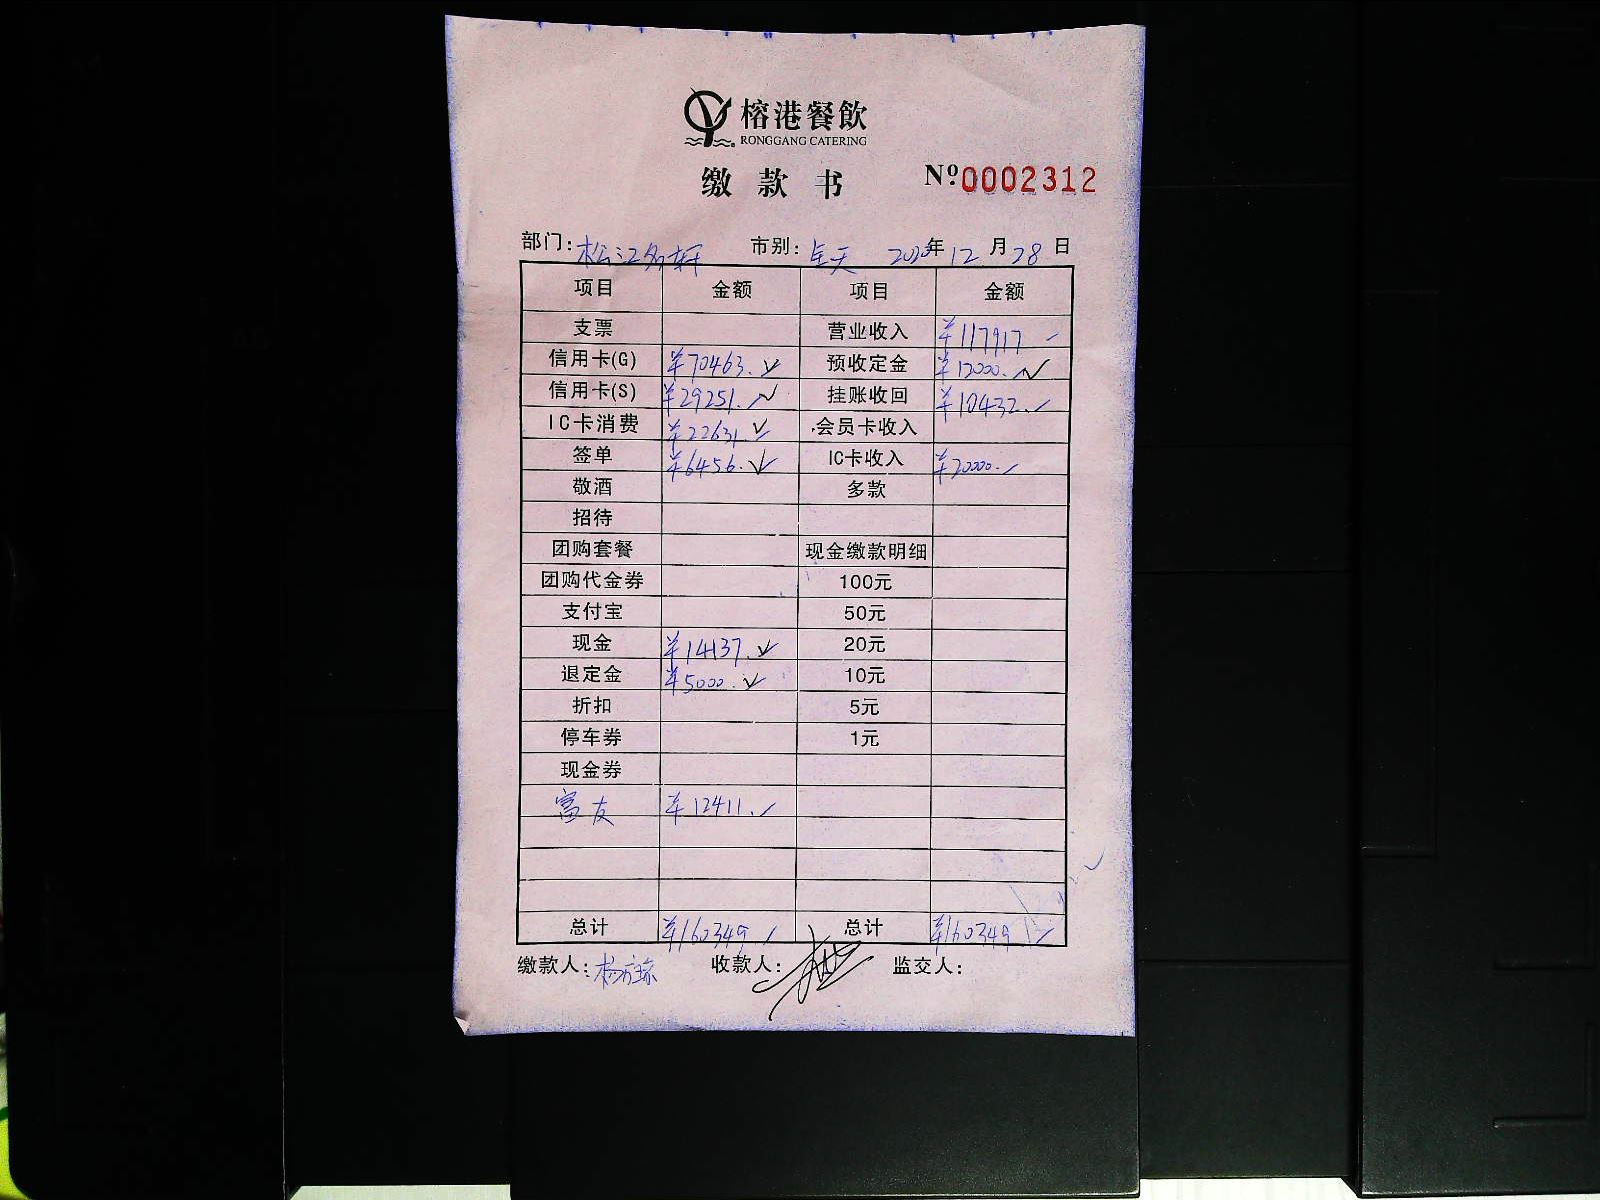 榕港餐飲
RONGGANG CATERING
缴款书 Nº 0002312
部门: 松江名轩 市别: 全天 2020年 12月 28日
项目 金额 项目 金额
支票 营业收入 ¥117917
信用卡(G) ¥70463. 预收定金 ¥12000.
信用卡(S) ¥29251. 挂账收回 ¥10432.
IC卡消费 ¥22631. 会员卡收入
签单 ¥6456. IC卡收入 ¥20000.
敬酒 多款
招待
团购套餐 现金缴款明细
团购代金券 100元
支付宝 50元
现金 ¥14137. 20元
退定金 ¥5000. 10元
折扣 5元
停车券 1元
现金券
富友 ¥12411.
总计 ¥160349 总计 ¥160349
缴款人: 收款人: 监交人: